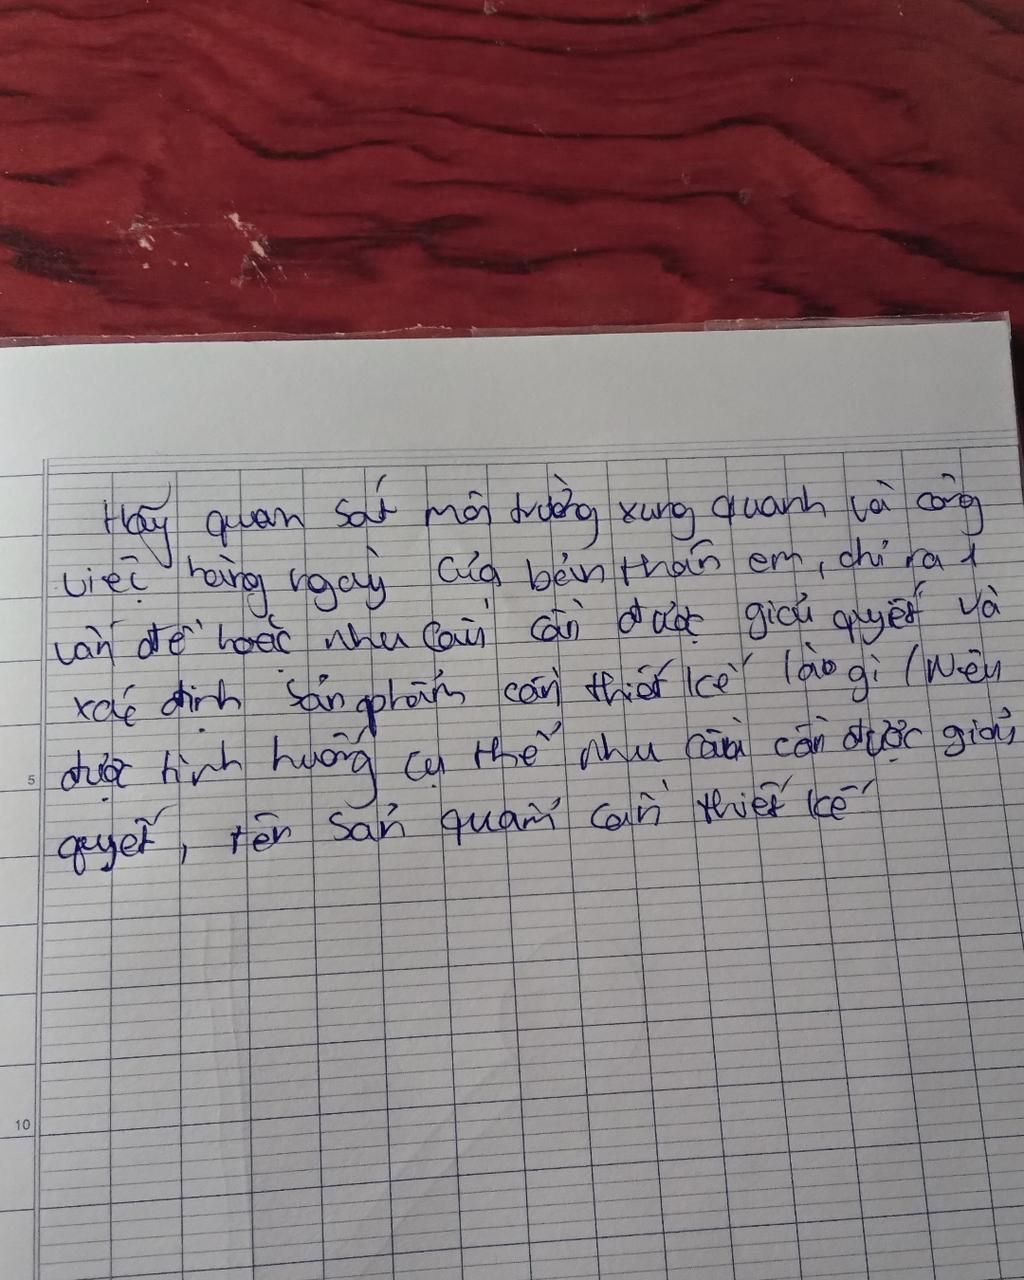 Hãy quan sát môi trường xung quanh và công
việc hàng ngày của bản thân em, chỉ ra 1
vấn đề hoặc nhu cầu cần được giải quyết và
xác định sản phẩm cần thiết kế là gì (Nêu
được tình huống cụ thể nhu cầu cần được giải
quyết, tên sản quam cần thiết kế
5
10